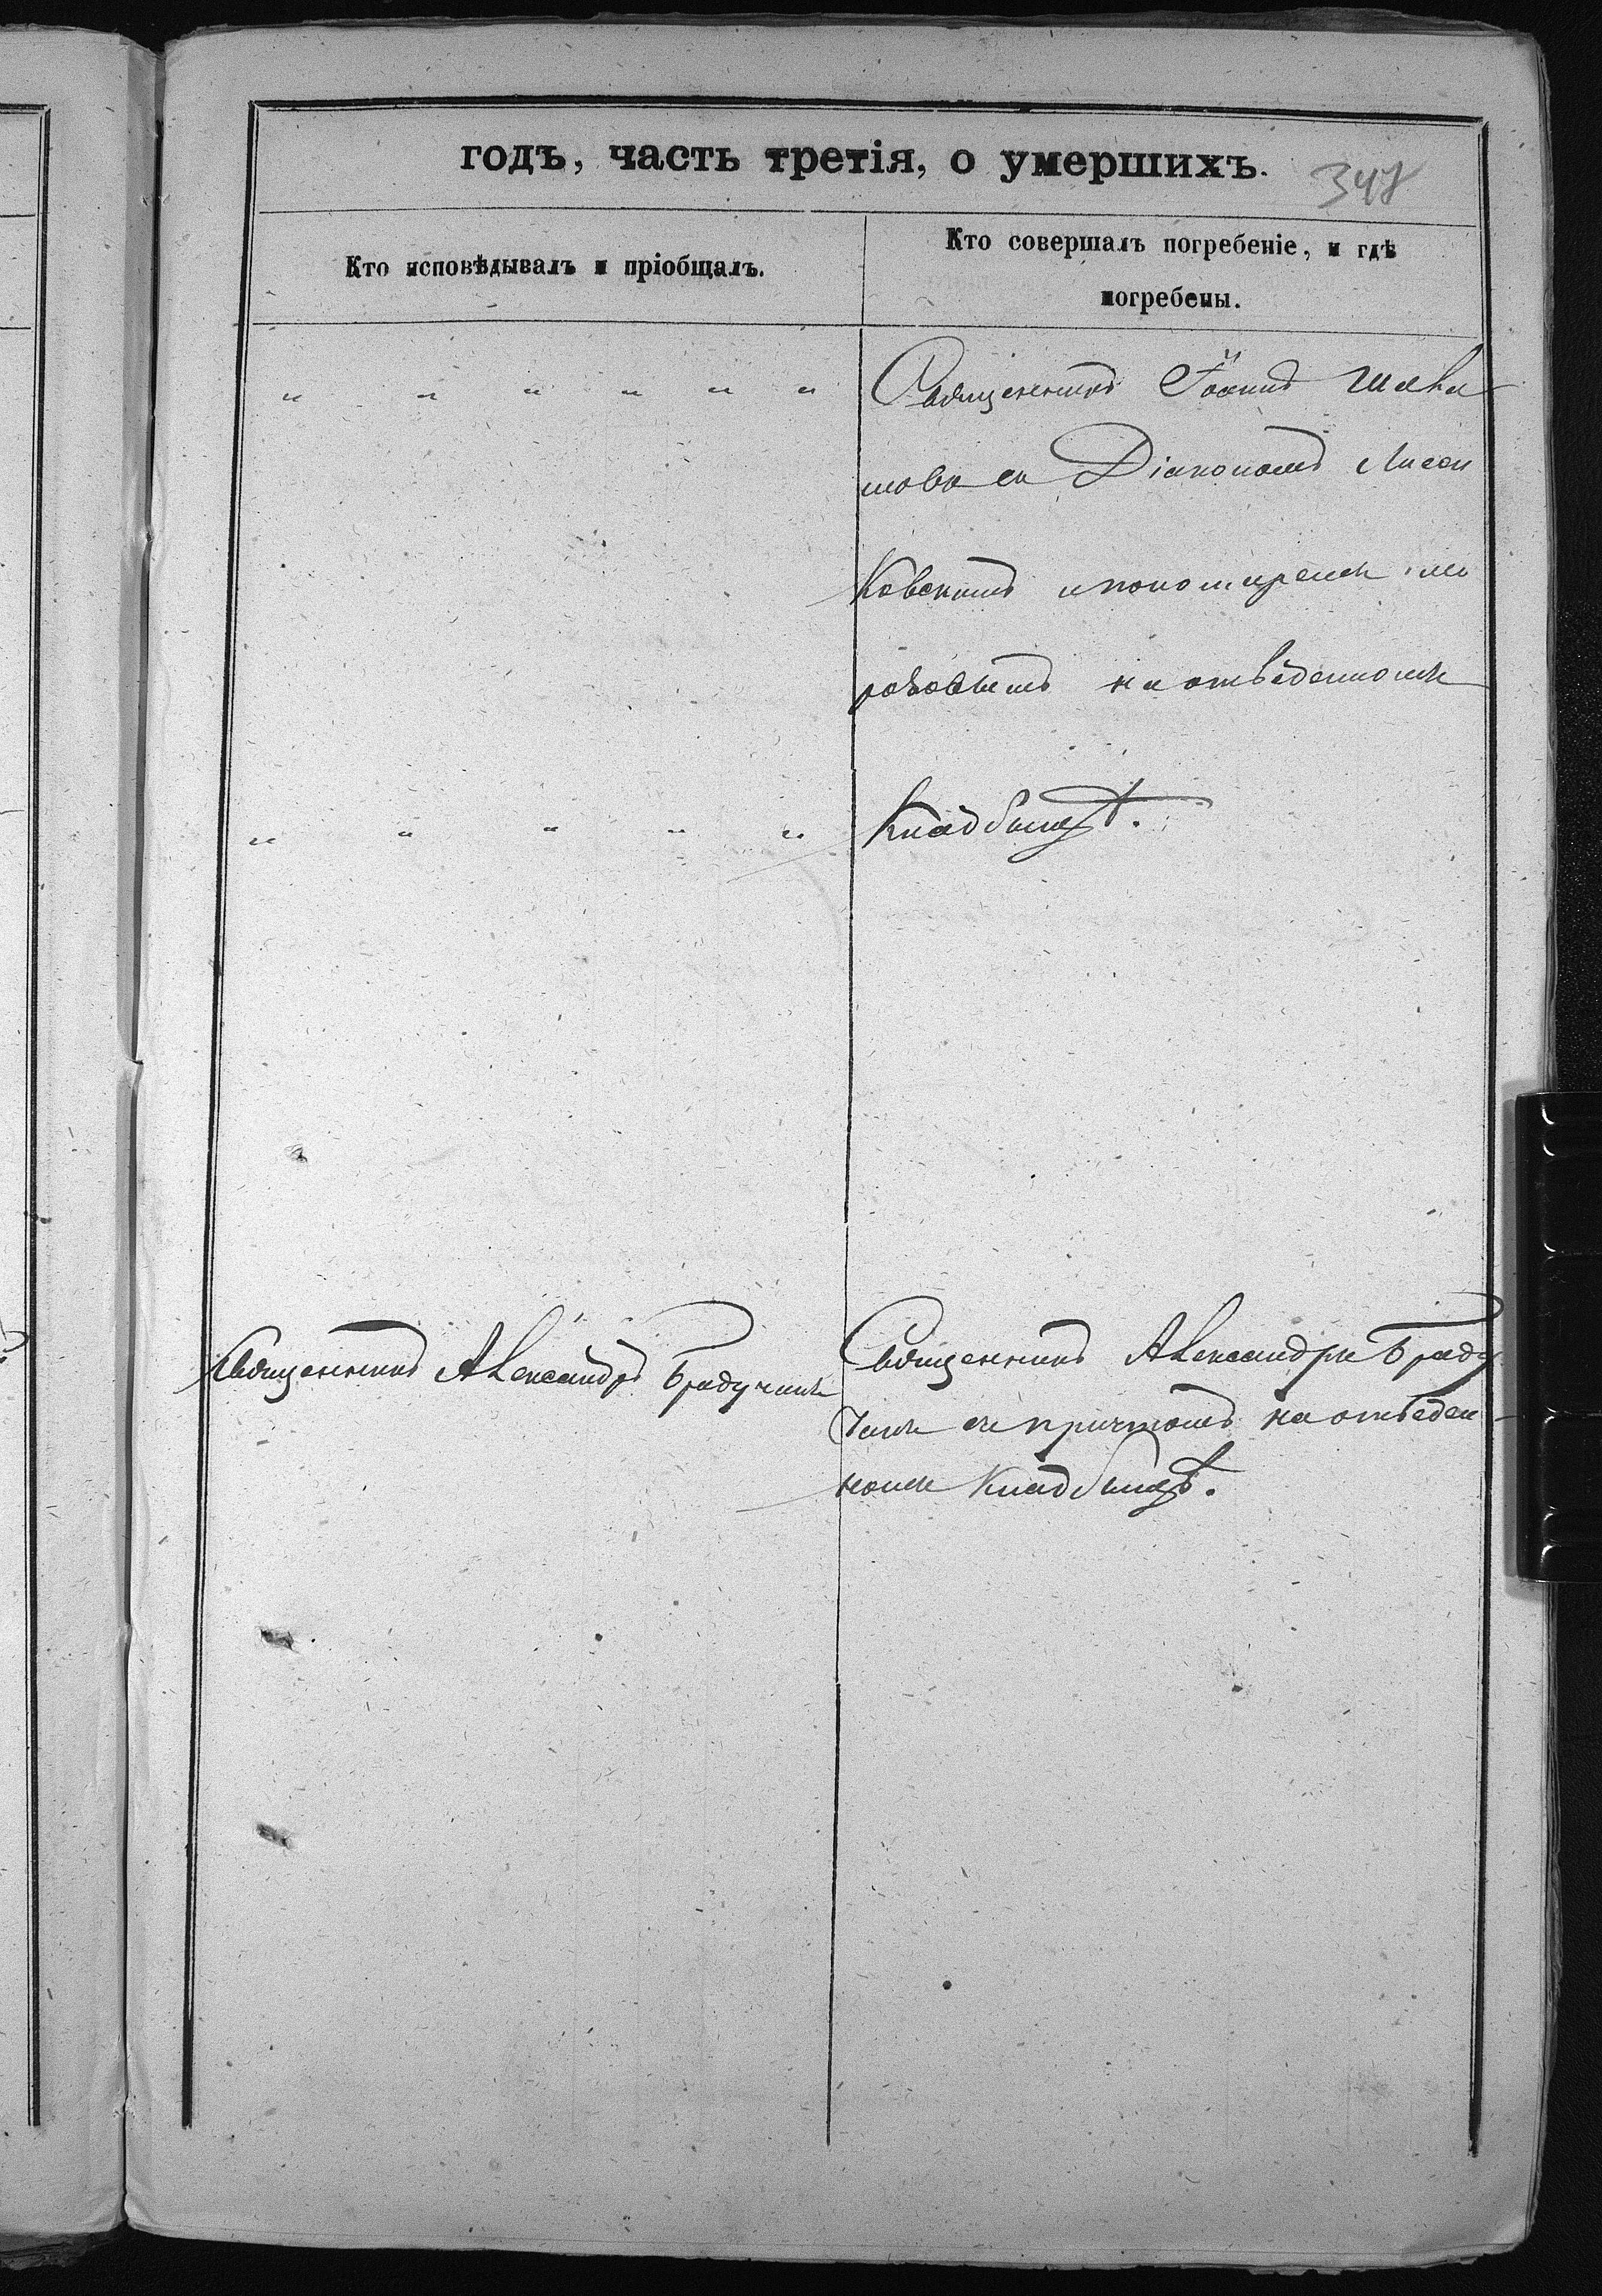 годъ, часть третія, о умершихъ.
347
Кто исповѣдывалъ и пріобщалъ.
Кто совершалъ погребеніе, и гдѣ
погребены.
„ „ „ „ „ „
Священникъ Іоаннъ
съ Діакономъ Лисси
ковскимъ и пономаремъ
на отведенномъ
„ „ „ „ „
Кладбищѣ.
Священникъ Александръ Брадучанъ
Священникъ Александръ Браду
чанъ съ причтомъ на отведен-
номъ Кладбищѣ.